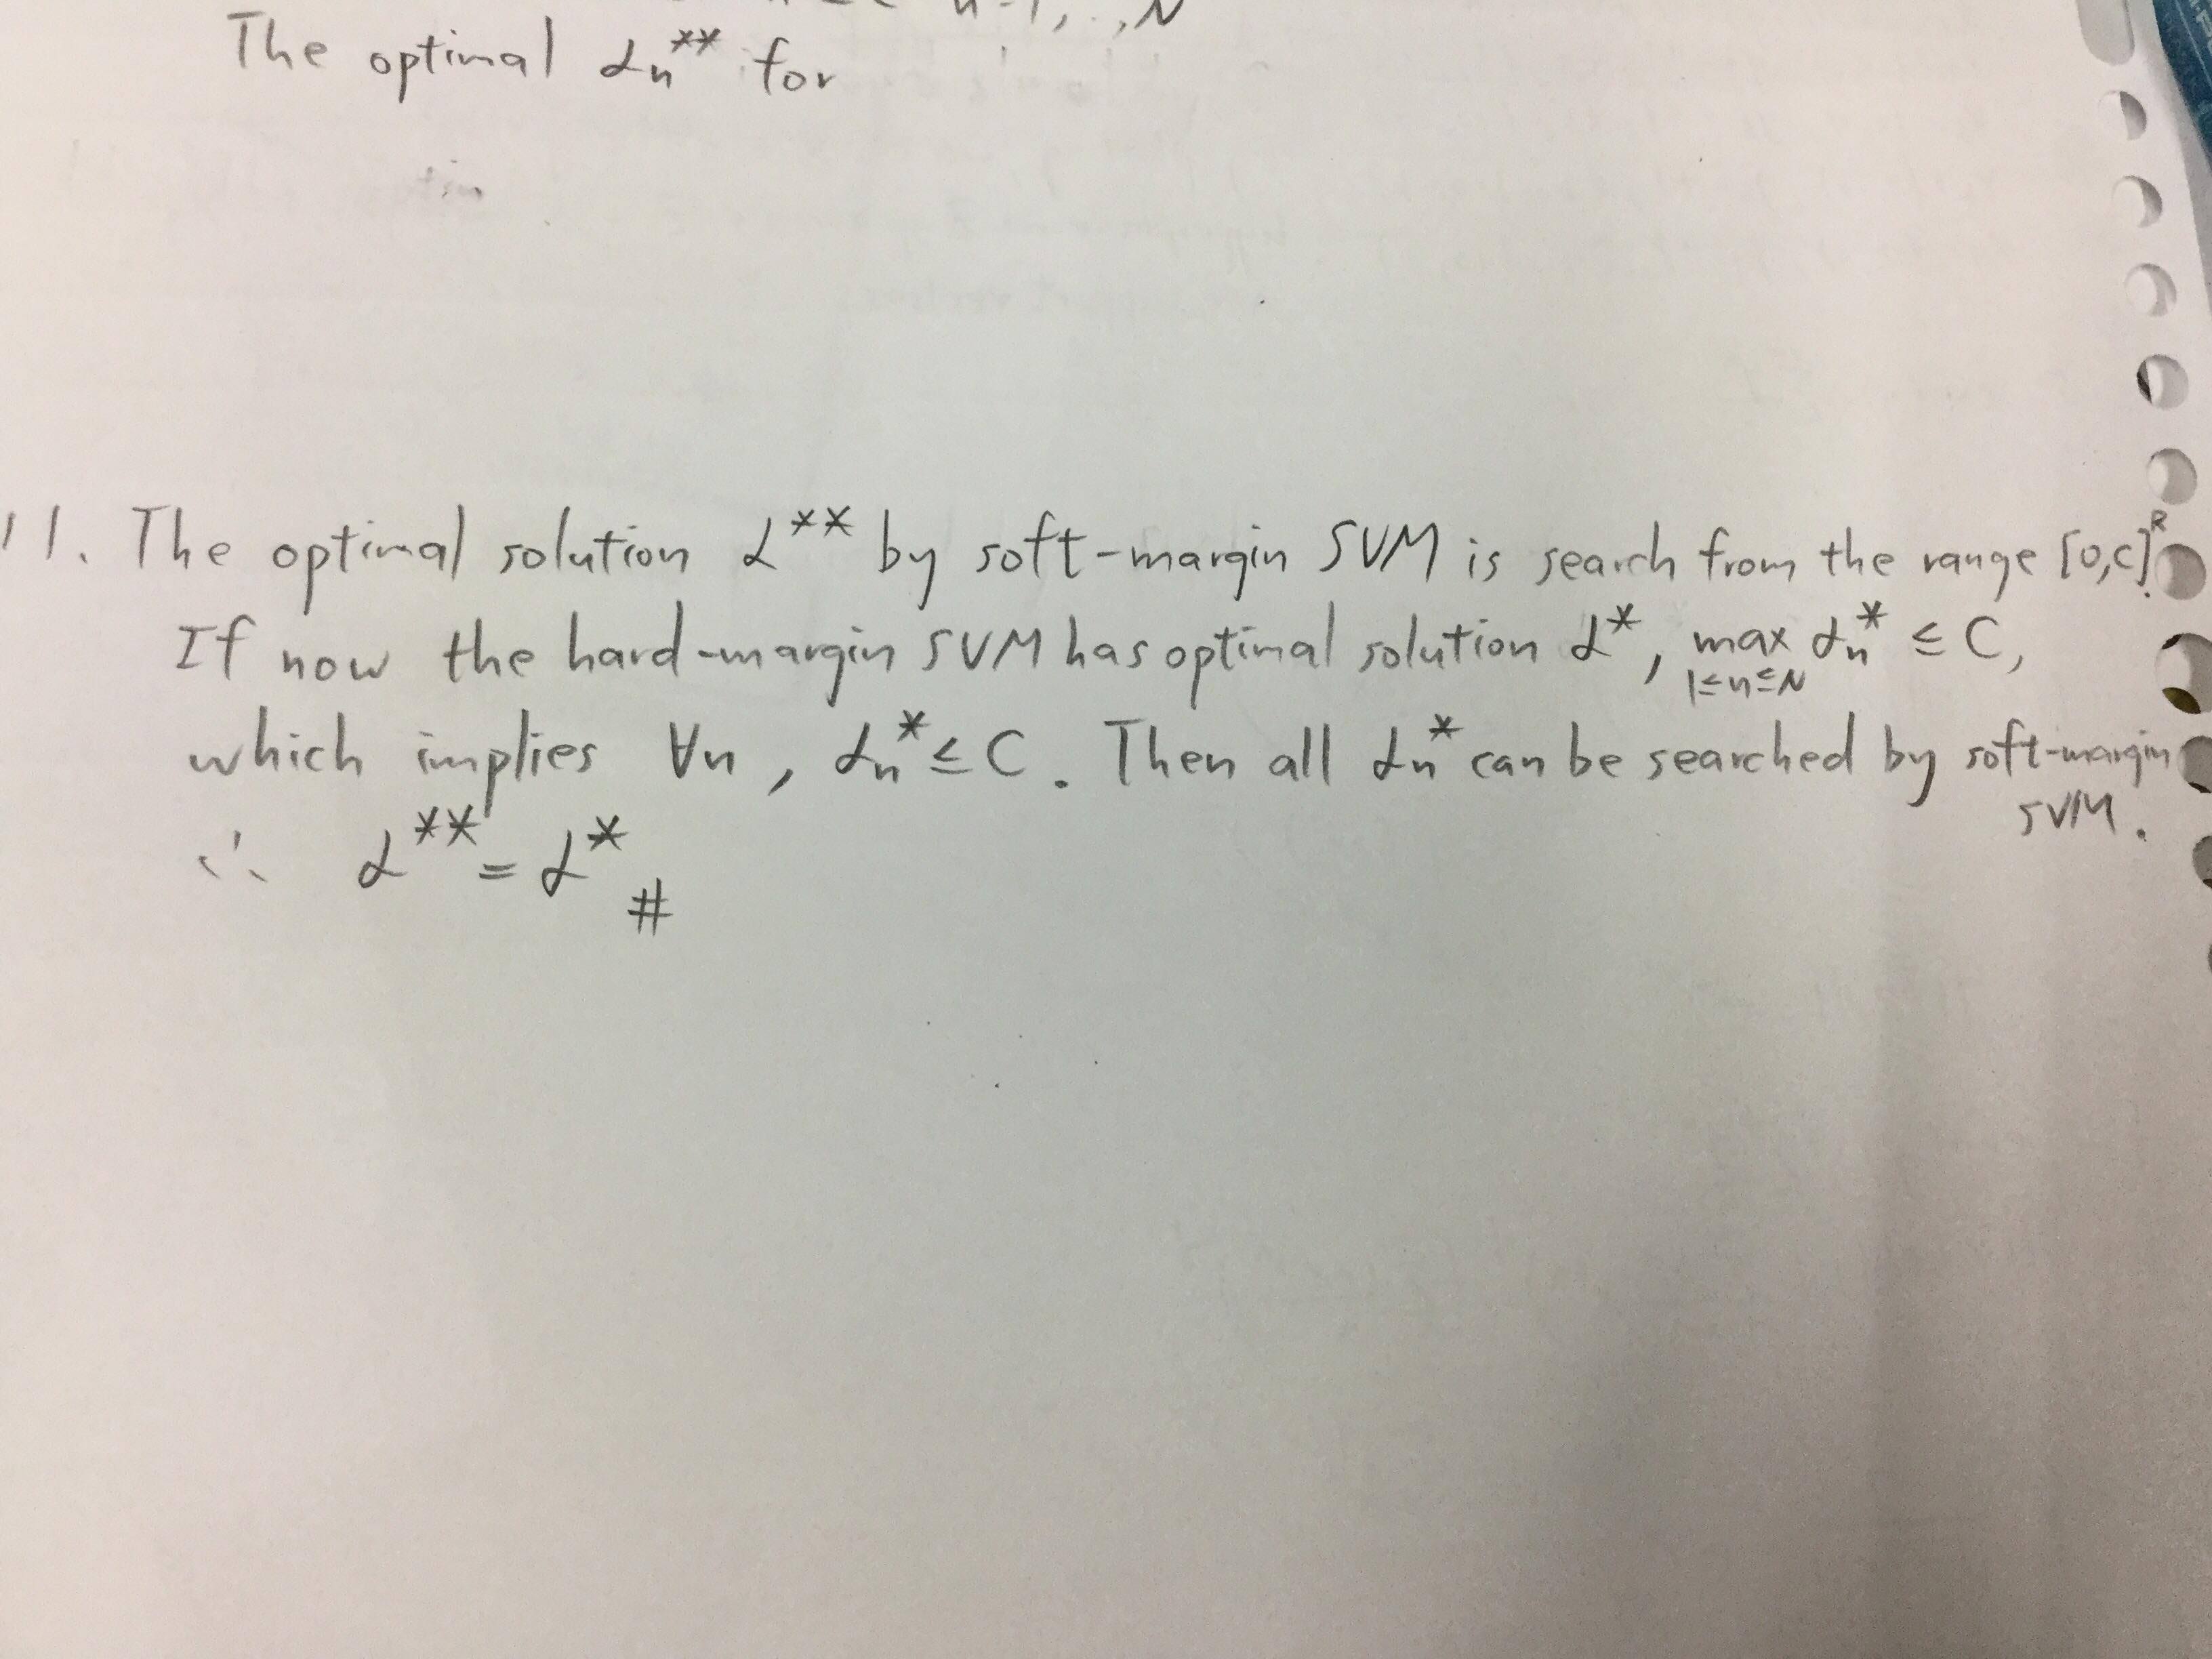 n=1,..,N
The optimal αₙ** for
11. The optimal solution α** by soft-margin SVM is search from the range [0,C]ᴿ.
If now the hard-margin SVM has optimal solution α*, max αₙ* ≤ C,
1≤n≤N
which implies ∀n, αₙ* ≤ C. Then all αₙ* can be searched by soft-margin
SVM.
∴ α** = α* #